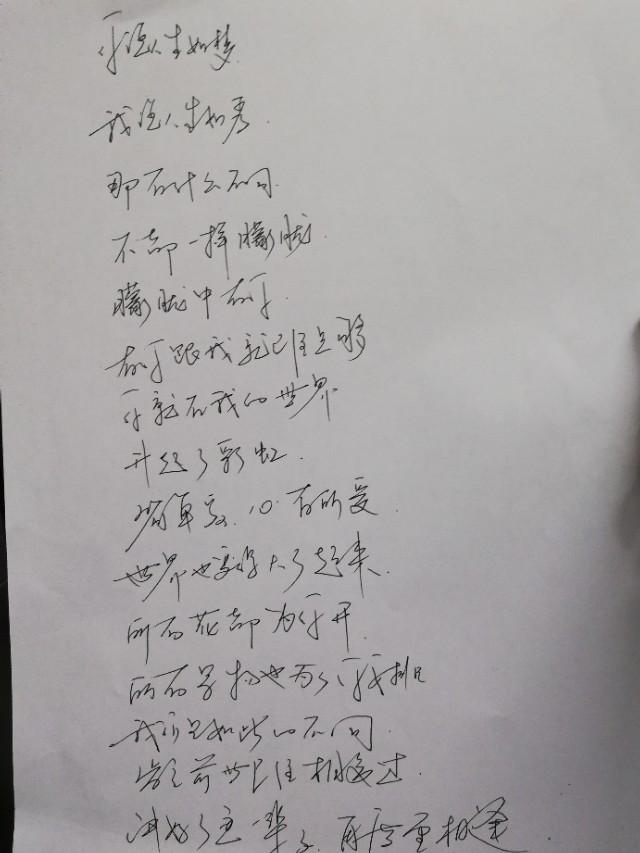 你说人生如梦
我说人生如秀
那有什么不同
不都一样朦胧
朦胧中有你
有你跟我就已经足够
你就在我的世界
升起了彩虹
简单爱 心有所爱
世界也变得大了起来
所有花都为你开
所有景物也为了你安排
我们是如此的不同
肯定前世已经相遇过
讲好了这一辈子 再度重相逢